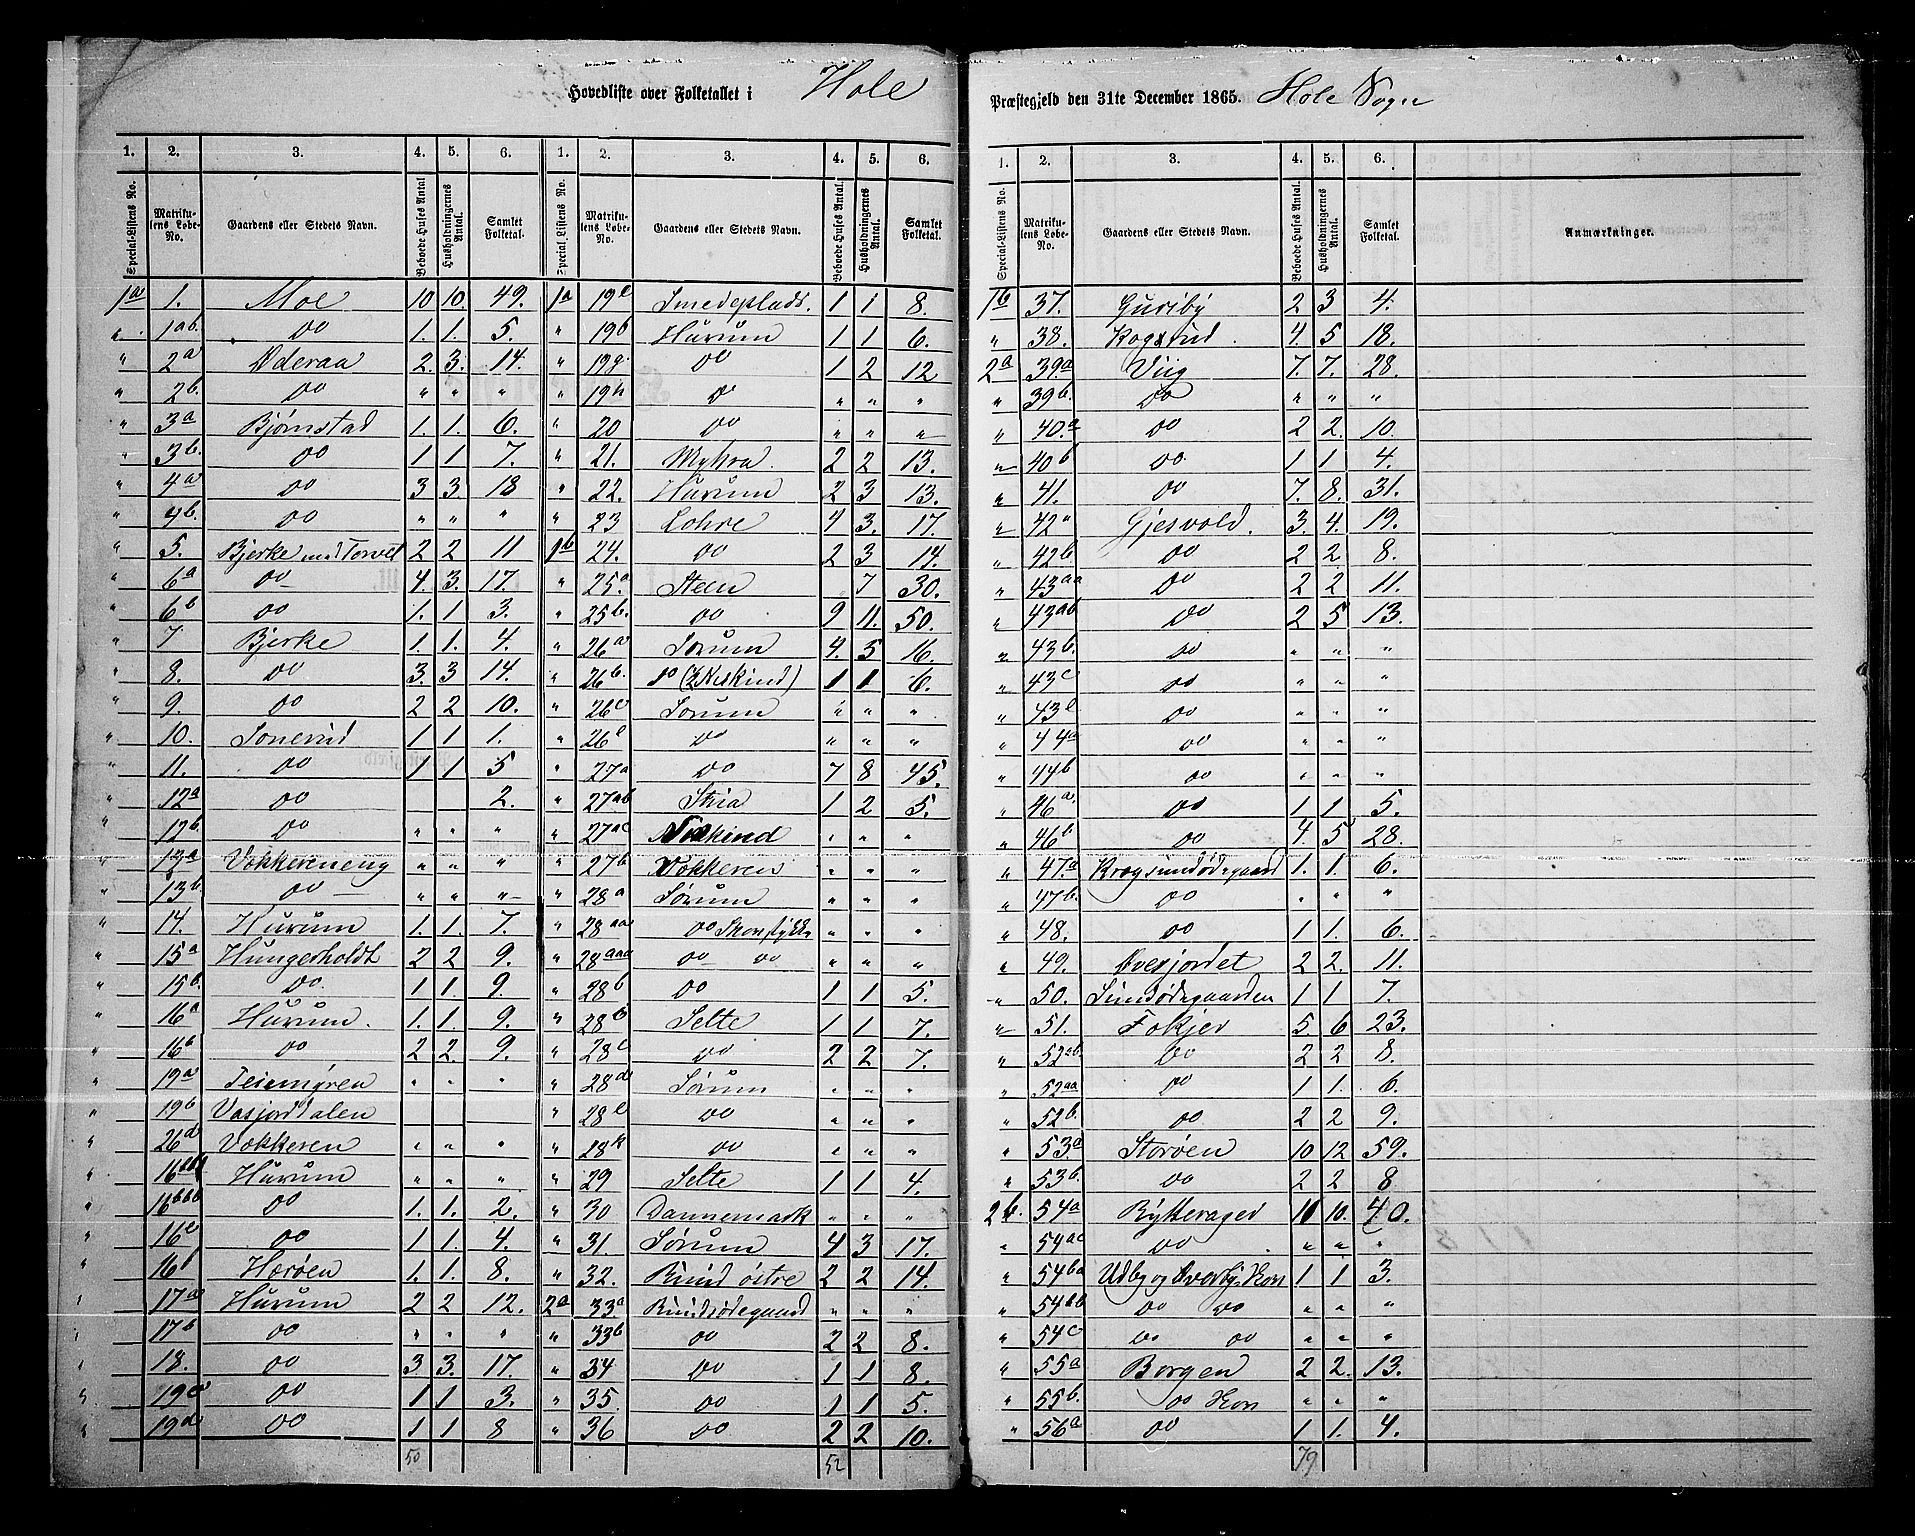 Hovedliste over Folketallet i Hole
Præstegjeld den 31te December 1865. Hole Sogn
1. 2. 3. 4. 5. 6. 1. 2. 3. 4. 5. 6.
Special-Listens No. Matrikulens Løbe-No. Gaardens eller Stedets Navn. Beboede Huses Antal Husholdningernes Antal. Samlet Folketal. Special Listens No. Matrikulens Løbe-No. Gaardens eller Stedets Navn. Beboede Huses Antal. Husholdningernes Antal. Samlet Folketal.
1a 1. Moe 10 10. 49. 1a 19e Smedeplads. 1 1 8.
" 1ab. do 1. 1. 5. " 19b Hurum 1 1 6.
" 2a Aderaa 2. 3. 14. " 19g do 1 2 12
" 2b. do " " " " 19h do " " "
" 3a Bjørnstad 1. 1. 6. " 20 do " " "
" 3b. do 1 1 7. " 21. Mykra. 2 2 13.
" 4a do 3 3. 18 " 22. Hurum 2 3 13.
" 4b. do " " " " 23 Lohre 4 3. 17.
" 5. Bjerke med Torvet 2 2 11 1b 24. do 2 3 14.
" 6a do 4. 3. 17. " 25a Steen 7 30.
" 6b do 1. 1 3. " 25b. do 9 11. 50.
" 7 Bjerke 1. 1. 4. " 26a Sørum 4. 5 16.
" 8. do 3. 3 14. " 26b. do (Neskind) 1 1 6.
" 9. do 2 2 10. " 26c Sørum " " "
" 10. Sonerud 1 1 1. " 26e do " " "
" 11. do 1 1 5 " 27a do 7 8 45.
" 12a do 2. " 27ab Stria 1 2 5.
" 12b. do " " " " 27ac Neskind " " "
" 13a Vokkereneng " " " " 27b Vokkeren " " "
" 13b do " " " " 28a Sørum " " "
" 14. Hurum 1. 1. 7. " 28aa do Skovstykke " " "
" 15a Hungerholdt 2 2 9. " 28aaa do do " " "
" 15b. do 1 1. 9. " 28b do 1 1 5.
" 16a Hurum. 1. 1. 9. " 28b Selte 1 1 7.
" 16b do 2 2. 9. " 28c do 2 2 7.
" 19a Teiemyren " " " " 28d Sørum " " "
" 19b Vasjorddalen " 28e do " " "
" 26d Vokkeren " " " " 28k do " " "
" Hurum " " " " 29 Selte 1 1 4.
" 16bbb do 1. 1. 2. " 30 Dannemark " " "
" 16c do 1 1. 4. " 31. Sørum 4 3 17.
" 16f Herøen 1. 1. 8. " 32. Rud østre 2 2 14.
" 17a Hurum 2 2 12. 2a 33a Rudsødegaard " " "
" 17b do " " " " 33b do 2 2 8.
" 18. do 3 3. 17. " 34 do 1 1 8.
" 19c do 1 1 3. " 35. do 1 1 5.
" 19d do 1 1 8 " 36 do 2 2 10.
50 52
1. 2. 3. 4. 5. 6.
Special-Listens No. Matrikulens Løbe-No. Gaardens eller Stedets Navn. Beboede Huses Antal. Husholdningernes Antal. Samlet Folketal. Anmærkninger.
1b 37. Guriby 2 3 4.
" 38. Rogstad. 4. 5 18.
2a 39.a Viig 7. 7. 28.
" 39b. do " " "
" 40.a do 2 2. 10.
" 40b do. 1 1 4.
" 41. do 7. 8. 31.
" 42a Gjesvold. 3. 4. 19.
" 42b do 2 2 8.
" 43aa do 2 2 11.
" 43ab do 2 5 13.
" 43b. do " " "
" 43c do " " "
" 43e do " " "
" 44a do " " "
" 44b do " " "
" 46a. do 1 1 5.
" 46b do 4. 5 28.
" 47.a Krogsundødegaard 1. 1. 6.
" 47b. do " " "
" 48. do 1 1. 6.
" 49. Svesjordet 2 2. 11.
" 50. Sundødegaarden 1 1 7.
" 51. Fokjer 5 6 23.
" 52ab. do 2 2 8.
" 52aa do 1 1. 6.
" 52b. do 2 2 9.
" 53.a Storøen 10 12 59.
" 53b. do 2 2 8
2b. 54a Rytterager 11 10. 40.
" 54ac do . " " "
" 54ba Udby og Averby, Kon 1 1 3.
" 54bb do do " " "
" 54c do do " " "
" 55a Borgen 2 2. 13.
" 55b. do Kon " " "
" 56a do 1 1. 4.
79